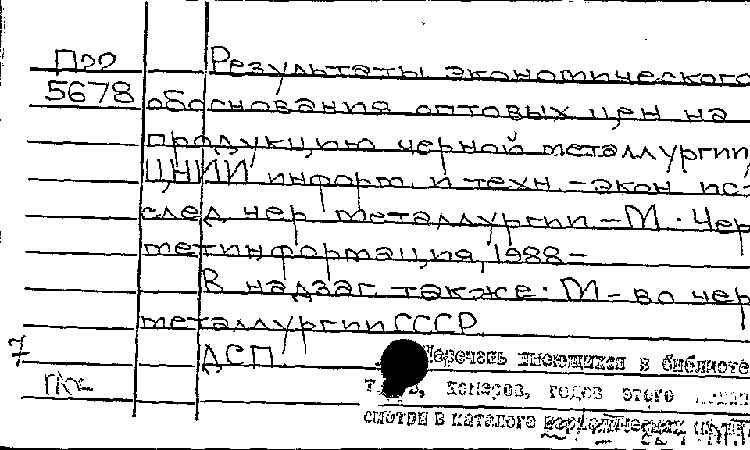 П20
Результаты экономического
5678 обоснования оптовых цен на
продукцию черной металлургии
ЦНИИ информ. и техн.-экон исс
след чер металлургии - М. Чер
метинформация, 1988 -
В надзаг также: М-во чер
металлургии СССР
ДСП.
7
Перечень имеющихся в библиоте
номеров, годов этого
смотри в каталоге периодических